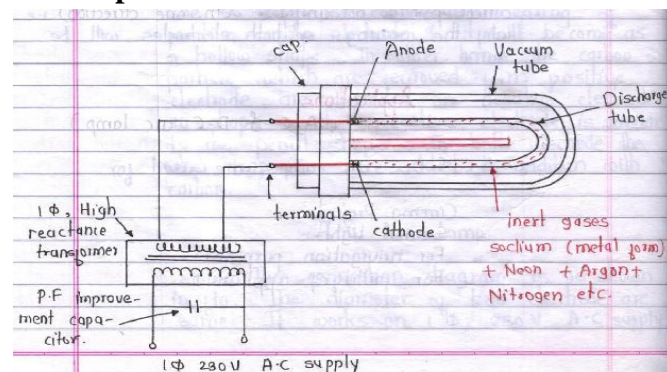 cap.
Anode
Vacuum
tube
Discharge
tube
terminals
cathode
inert gases
sodium (metal form)
+ Neon + Argon +
Nitrogen etc.
1Φ, High
reactance
transformer
P.F improve-
ment capa-
citor.
1Φ 230V A.C supply